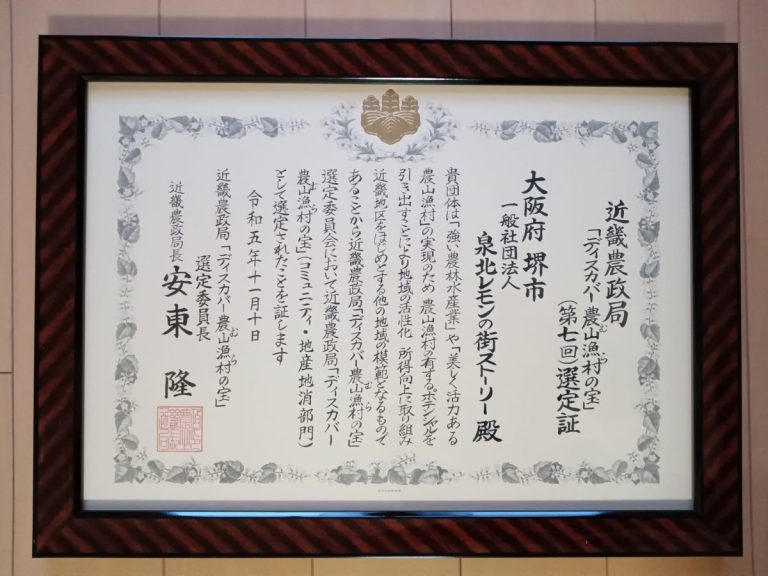 近畿農政局
「ディスカバー農山漁村の宝」
(第七回)選定証
大阪府 堺市
一般社団法人
泉北レモンの街ストーリー 殿
貴団体は「強い農林水産業」や「美しく活力ある
農山漁村」の実現のため 農山漁村の有するポテンシャルを
引き出すことにより地域の活性化 所得向上に取り組み
近畿地区をはじめとする他の地域の模範となるもので
あることから近畿農政局「ディスカバー農山漁村の宝」
選定委員会において近畿農政局「ディスカバー
農山漁村の宝」(コミュニティ・地産地消部門)
として選定されたことを証します
令和五年十一月十日
近畿農政局「ディスカバー 農山漁村の宝」
選定委員長
近畿農政局長 安東 隆